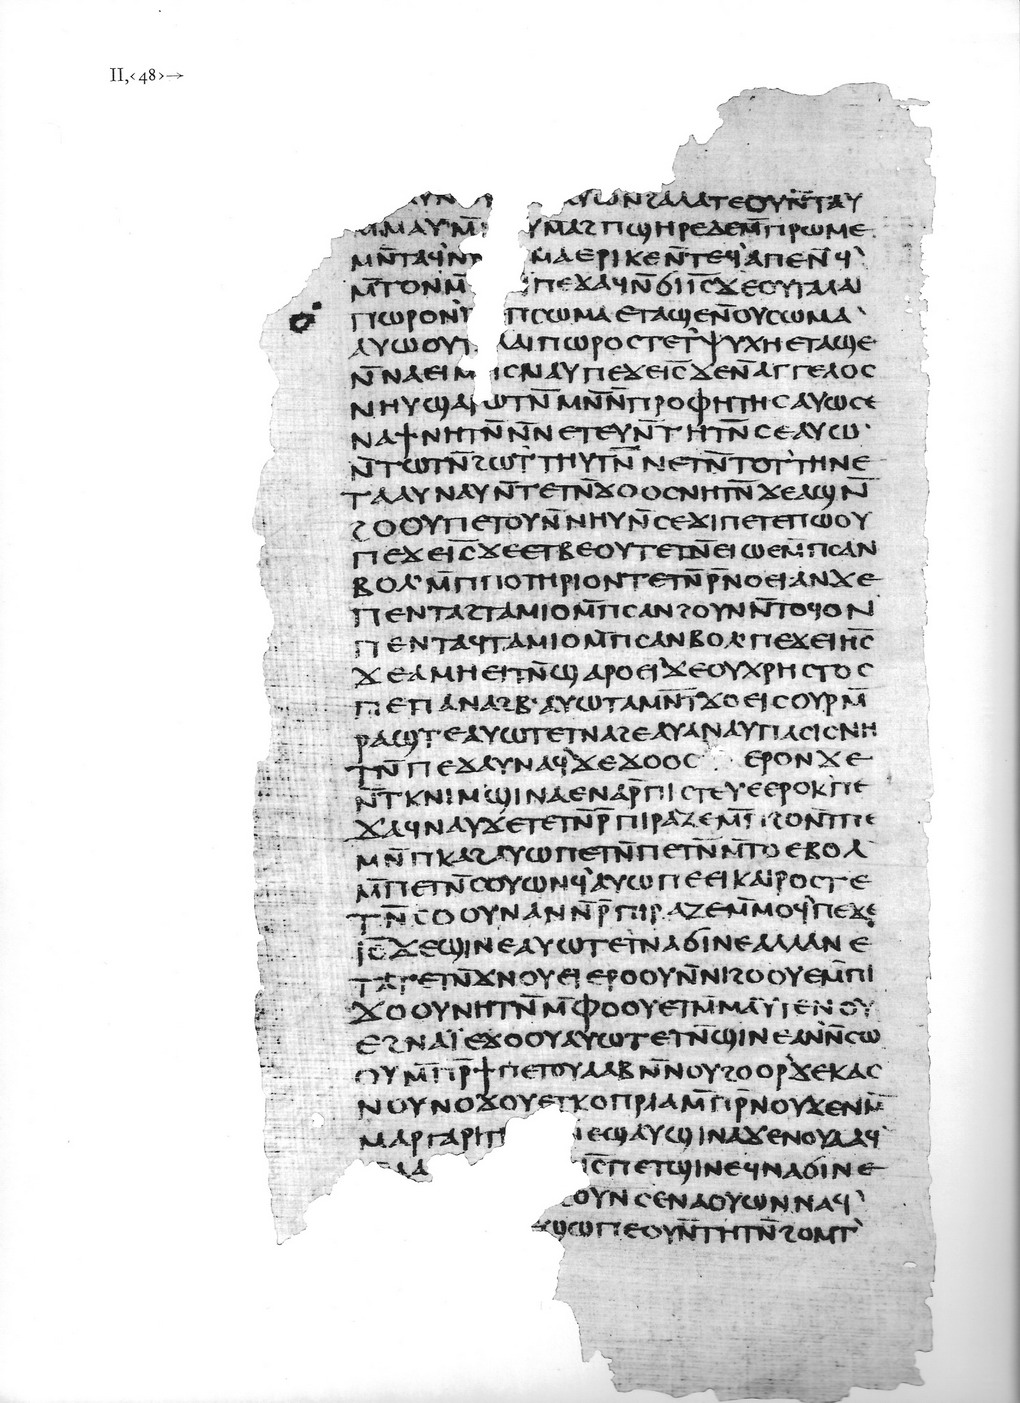 ⲁⲩⲱ ⲛϩⲁⲗⲁⲧⲉ ⲟⲩⲛ̅ⲧⲁⲩ
ⲙⲙⲁⲩ ⲙ̅ ⲩⲙⲁϩ ⲡϣⲏⲣⲉ ⲇⲉ ⲙ̅ⲡⲣⲱⲙⲉ
ⲙⲛ̅ⲧⲁϥ ⲛⲛ ⲙⲁ ⲉⲣⲓⲕⲉ ⲛ̅ⲧⲉϥ`ⲁⲡⲉ ⲛ̅ϥ`
ⲙ̅ⲧⲟⲛ ⲙⲙ̅ ⲡⲉϫⲁϥ ⲛ̅ϭⲓ ⲓⲥ̅ ϫⲉ ⲟⲩⲧⲁⲗⲁⲓ
ⲡⲱⲣⲟⲛ` ⲡⲥⲱⲙⲁ ⲉⲧⲁϣⲉ ⲛ̅ⲟⲩⲥⲱⲙⲁ`
ⲁⲩⲱ ⲟⲩⲧ ⲗⲁⲓⲡⲱⲣⲟⲥ ⲧⲉ ⲧ`ⲯⲩⲭⲏ ⲉⲧⲁϣⲉ
ⲛ̅ⲛⲁⲉⲓ ⲙ ⲡⲥⲛⲁⲩ ⲡⲉϫⲉ ⲓⲥ̅ ϫⲉ ⲛ̅ⲁⲅⲅⲉⲗⲟⲥ
ⲛⲏⲩ ϣⲁⲣⲱⲧⲛ̅ ⲙⲛ̅ⲛ̅ⲡⲣⲟⲫⲏⲧⲏⲥ ⲁⲩⲱ ⲥⲉ
ⲛⲁϯ ⲛⲏⲧⲛ̅ ⲛ̅ⲛⲉⲧⲉⲩⲛ̅ⲧⲏⲧⲛ̅ⲥⲉ ⲁⲩⲱ`
ⲛ̅ⲧⲱⲧⲛ̅ ϩⲱⲧ`ⲧⲏⲩⲧⲛ̅ ⲛⲉⲧⲛ̅ⲧⲟⲧ`ⲧⲏⲛⲉ
ⲧⲁⲁⲩ ⲛⲁⲩ ⲛ̅ⲧⲉⲧⲛ̅ϫⲟⲟⲥ ⲛⲏⲧⲛ̅ ϫⲉ ⲁϣ ⲛ̅
ϩⲟⲟⲩ ⲡⲉⲧⲟⲩⲛ̅ⲛⲏⲩ ⲛ̅ⲥⲉϫⲓ ⲡⲉⲧⲉ ⲡⲱⲟⲩ
ⲡⲉϫⲉ ⲓⲥ̅ ϫⲉ ⲉⲧⲃⲉ ⲟⲩ ⲧⲉⲧⲛ̅ⲉⲓⲱⲉ ⲙ̅ⲡⲥⲁⲛ
ⲃⲟⲗ` ⲙ̅ⲡⲡⲟⲧⲏⲣⲓⲟⲛ ⲧⲉⲧⲛ̅ⲣ̅ⲛⲟⲉⲓ ⲁⲛ ϫⲉ
ⲡⲉⲛⲧⲁϩⲧⲁⲙⲓⲟ ⲙ̅ⲡⲥⲁⲛϩⲟⲩⲛ ⲛ̅ⲧⲟϥ ⲟⲛ
ⲡⲉⲛⲧⲁϥⲧⲁⲙⲓⲟ ⲙ̅ⲡⲥⲁⲛⲃⲟⲗ` ⲡⲉϫⲉ ⲓⲏⲥ̅
ϫⲉ ⲁⲙⲏⲉⲓⲧⲛ̅ ϣⲁⲣⲟⲉⲓ` ϫⲉ ⲟⲩⲭⲣⲏⲥⲧⲟⲥ
ⲡⲉ ⲡⲁⲛⲁϩⲃ` ⲁⲩⲱ ⲧⲁⲙⲛ̅ⲧ`ϫⲟⲉⲓⲥ ⲟⲩⲣⲙ̅
ⲣⲁϣ ⲧⲉ ⲁⲩⲱ ⲧⲉⲧⲛⲁϩⲉ ⲁⲩⲁⲛⲁⲩⲡⲁⲥⲓⲥ ⲛⲏ
ⲧⲛ̅ ⲡⲉϫⲁⲩ ⲛⲁϥ` ϫⲉ ϫⲟⲟⲥ ⲉⲣⲟⲛ ϫⲉ
ⲛ̅ⲧⲕ ⲛⲓⲙ` ϣⲓⲛⲁ ⲉⲛⲁⲣ̅ⲡⲓⲥⲧⲉⲩⲉ ⲉⲣⲟⲕ ⲡⲉ
ϫⲁϥ ⲛⲁⲩ ϫⲉ ⲧⲉⲧⲛ̅ⲣ̅ⲡⲓⲣⲁⲍⲉ ⲙ̅ⲡϩⲟ ⲛ̅ⲧⲡⲉ
ⲙⲛ̅ ⲡⲕⲁϩ ⲁⲩⲱ ⲡⲉⲧⲛ̅ⲡⲉⲧⲛ̅ⲙ̅ⲧⲟ ⲉⲃⲟⲗ`
ⲙ̅ⲡⲉⲧⲛ̅ⲥⲟⲩⲱⲛϥ` ⲁⲩⲱ ⲡⲉⲉⲓⲕⲁⲓⲣⲟⲥ ⲧⲉ
ⲧⲛ̅ⲥⲟⲟⲩⲛ ⲁⲛ ⲛ̅ⲣ̅ⲡⲓⲣⲁⲍⲉ ⲙ̅ⲙⲟϥ` ⲡⲉϫⲉ
ⲓⲥ̅ ϫⲉ ϣⲓⲛⲉ ⲁⲩⲱ ⲧⲉⲧⲛⲁϭⲓⲛⲉ ⲁⲗⲗⲁ ⲛⲉ
ⲧⲁⲧⲉⲧⲛ̅ϫⲛⲟⲩⲉⲓ ⲉⲣⲟⲟⲩ ⲛ̅ⲛⲓϩⲟⲟⲩ ⲉⲙ̅ⲡⲓ
ϫⲟⲟⲩ ⲛⲏⲧⲛ̅ ⲙ̅ⲫⲟⲟⲩ ⲉⲧⲙ̅ⲙⲁⲩ ⲧⲉⲛⲟⲩ
ⲉϩⲛⲁⲓ̈ ⲉϫⲟⲟⲩ ⲁⲩⲱ ⲧⲉⲧⲛ̅ϣⲓⲛⲉ ⲁⲛ ⲛ̅ⲥⲱ
ⲟⲩ ⲙ̅ⲡⲣ̅ϯ ⲡⲉⲧⲟⲩⲁⲁⲃ ⲛ̅ⲛⲟⲩϩⲟⲟⲣ` ϫⲉⲕⲁⲥ
ⲛⲟⲩⲛⲟϫⲟⲩ ⲉⲧⲕⲟⲡⲣⲓⲁ ⲙ̅ⲡⲣ̅ⲛⲟⲩϫⲉ ⲛ̅ⲙ̅
ⲙⲁⲣⲅⲁⲣⲓⲧ ⲛⲉϣⲁⲩ ϣⲓⲛⲁ ϫⲉ ⲛⲟⲩⲁⲁϥ`
ⲗⲁ ⲓⲥ̅ ⲡⲉⲧϣⲓⲛⲉ ϥⲛⲁϭⲓⲛⲉ
ϩⲟⲩⲛ ⲥⲉⲛⲁⲟⲩⲱⲛ ⲛⲁϥ`
ϫⲉ ϣⲱⲡⲉ ⲟⲩⲛ̅ⲧⲏⲧⲛ̅ ϩⲟⲙⲧ`
II,‹48›→